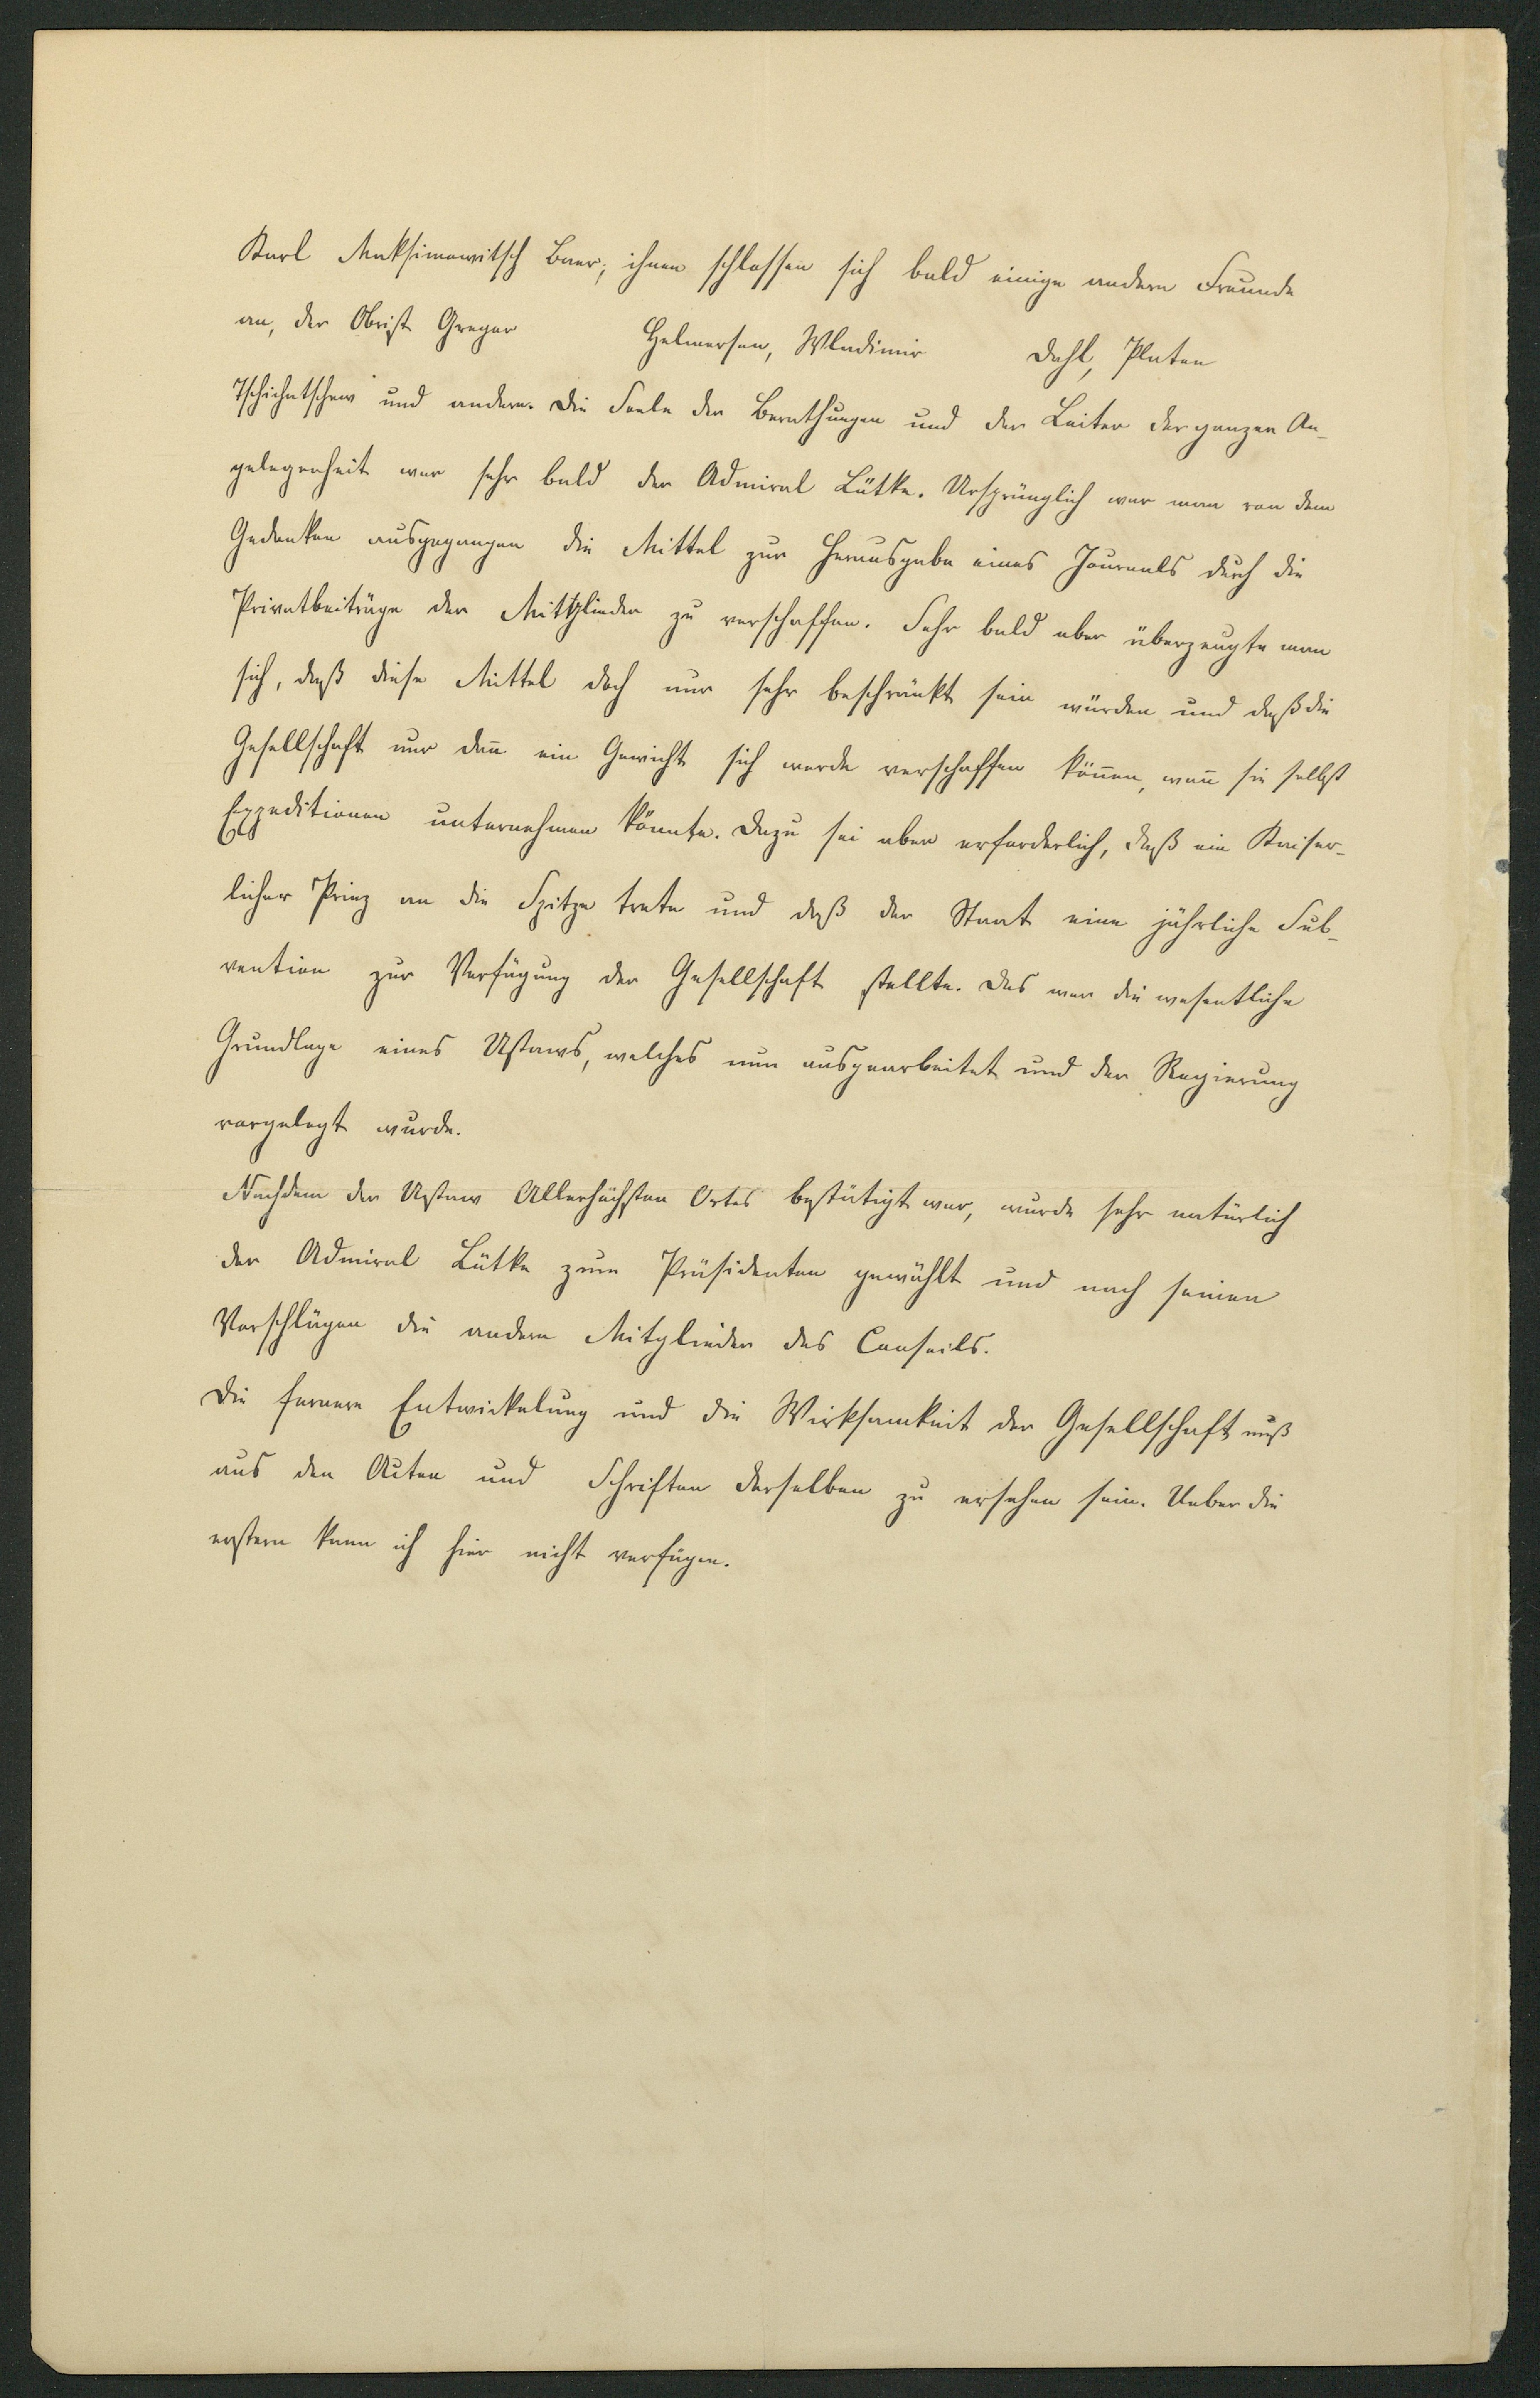 Karl Maksimowitsch Baer; ihnen schlossen sich bald einige andere Freunde
an, der Obrist Gregor Helmersen, Wladimir Dahl, Platon
Tschichatschew und andere. Die Seele der Berathungen und der Leiter der ganzen An-
gelegenheit war sehr bald der Admiral Lütke. Ursprünglich war man von dem
Gedanken ausgegangen die Mittel zur Herausgabe eines Journals durch die
Privatbeiträge der Mitglieder zu verschaffen. Sehr bald aber überzeugte man
sich, daß diese Mittel doch nur sehr beschränkt sein würden und daß die
Gesellschaft nur dañ ein Gewicht sich werde verschaffen köñen, weñ sie selbst
Expeditionen unternehmen könnte. Dazu sei aber erforderlich, daß ein Kaiser-
licher Prinz an die Spitze trete und daß der Staat eine jährliche Sub-
vention zur Verfügung der Gesellschaft stellte. Das war die wesentliche
Grundlage eines Ustaws, welches nun ausgearbeitet und der Regierung
vorgelegt wurde.
Nachdem der Ustaw Allerhöchsten Ortes bestätigt war, wurde sehr natürlich
der Admiral Lütke zum Präsidenten gewählt und nach seinen
Vorschlägen die andern Mitglieder des Conseils.
Die fernere Entwickelung und die Wirksamkeit der Gesellschaft muß
aus den Acten und Schriften derselben zu ersehen sein. Ueber die
erstern kann ich hier nicht verfügen.